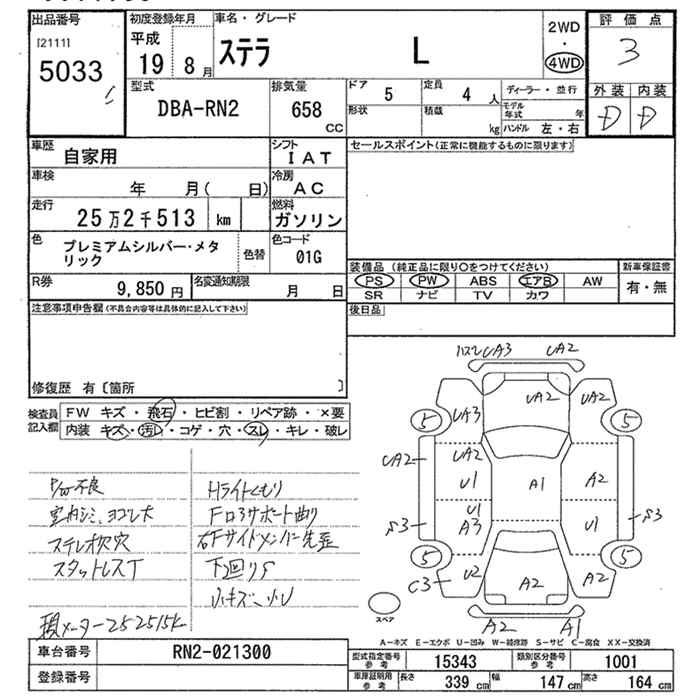 出品番号
[2111]
5033
初度登録年月
平成
19 8月
車名・グレード
ステラ L
2WD
・
4WD
評価点
3
外装 内装
D D
型式
DBA-RN2
排気量
658
CC
ドア
5
定員
4 人
形状
積載
kg
ディーラー・並行
モデル年式 年
ハンドル 左・右
車歴
自家用
シフト
IAT
車検
年 月( 日)
冷房
AC
走行
25万2千513 km
燃料
ガソリン
色
プレミアムシルバー・メタ
リック
色替
色コード
01G
R券
9,850円
名変通知期限
月 日
セールスポイント(正常に機能するものに限ります)
装備品 (純正品に限り○をつけてください)
PS PW ABS エアB AW
SR ナビ TV カワ
新車保証書
有・無
後日品
注意事項申告欄(不具合内容等は具体的に記入して下さい)
修復歴 有〔箇所 〕
検査員
記入欄
FW キズ・飛石・ヒビ割・リペア跡・×要
内装 キズ・汚れ・コゲ・穴・スレ・キレ・破レ
P/W不良
室内シミ、ヨゴレ大
ステレオ欠穴
スタットレスT
現メーター252515K
Hライトくもり
Fロアサポート曲り
右Fサイドメンバー先歪
下廻りS
小キズ、小U
UA3 UA2
UA3 UA2 UA2
5 5
UA2
UA2
U1 A1 A2
U1
A3 U1
S3 S3
5 5
C3 U2 A2 A2
A2 A1
スペア
A-キズ E-エクボ U-凹み W-補修跡 S-サビ C-腐食 XX-交換済
車台番号
RN2-021300
登録番号
型式指定番号
参考
15343
類別区分番号
参考
1001
車庫証明用
参考
長さ 339 cm
幅 147 cm
高さ 164 cm